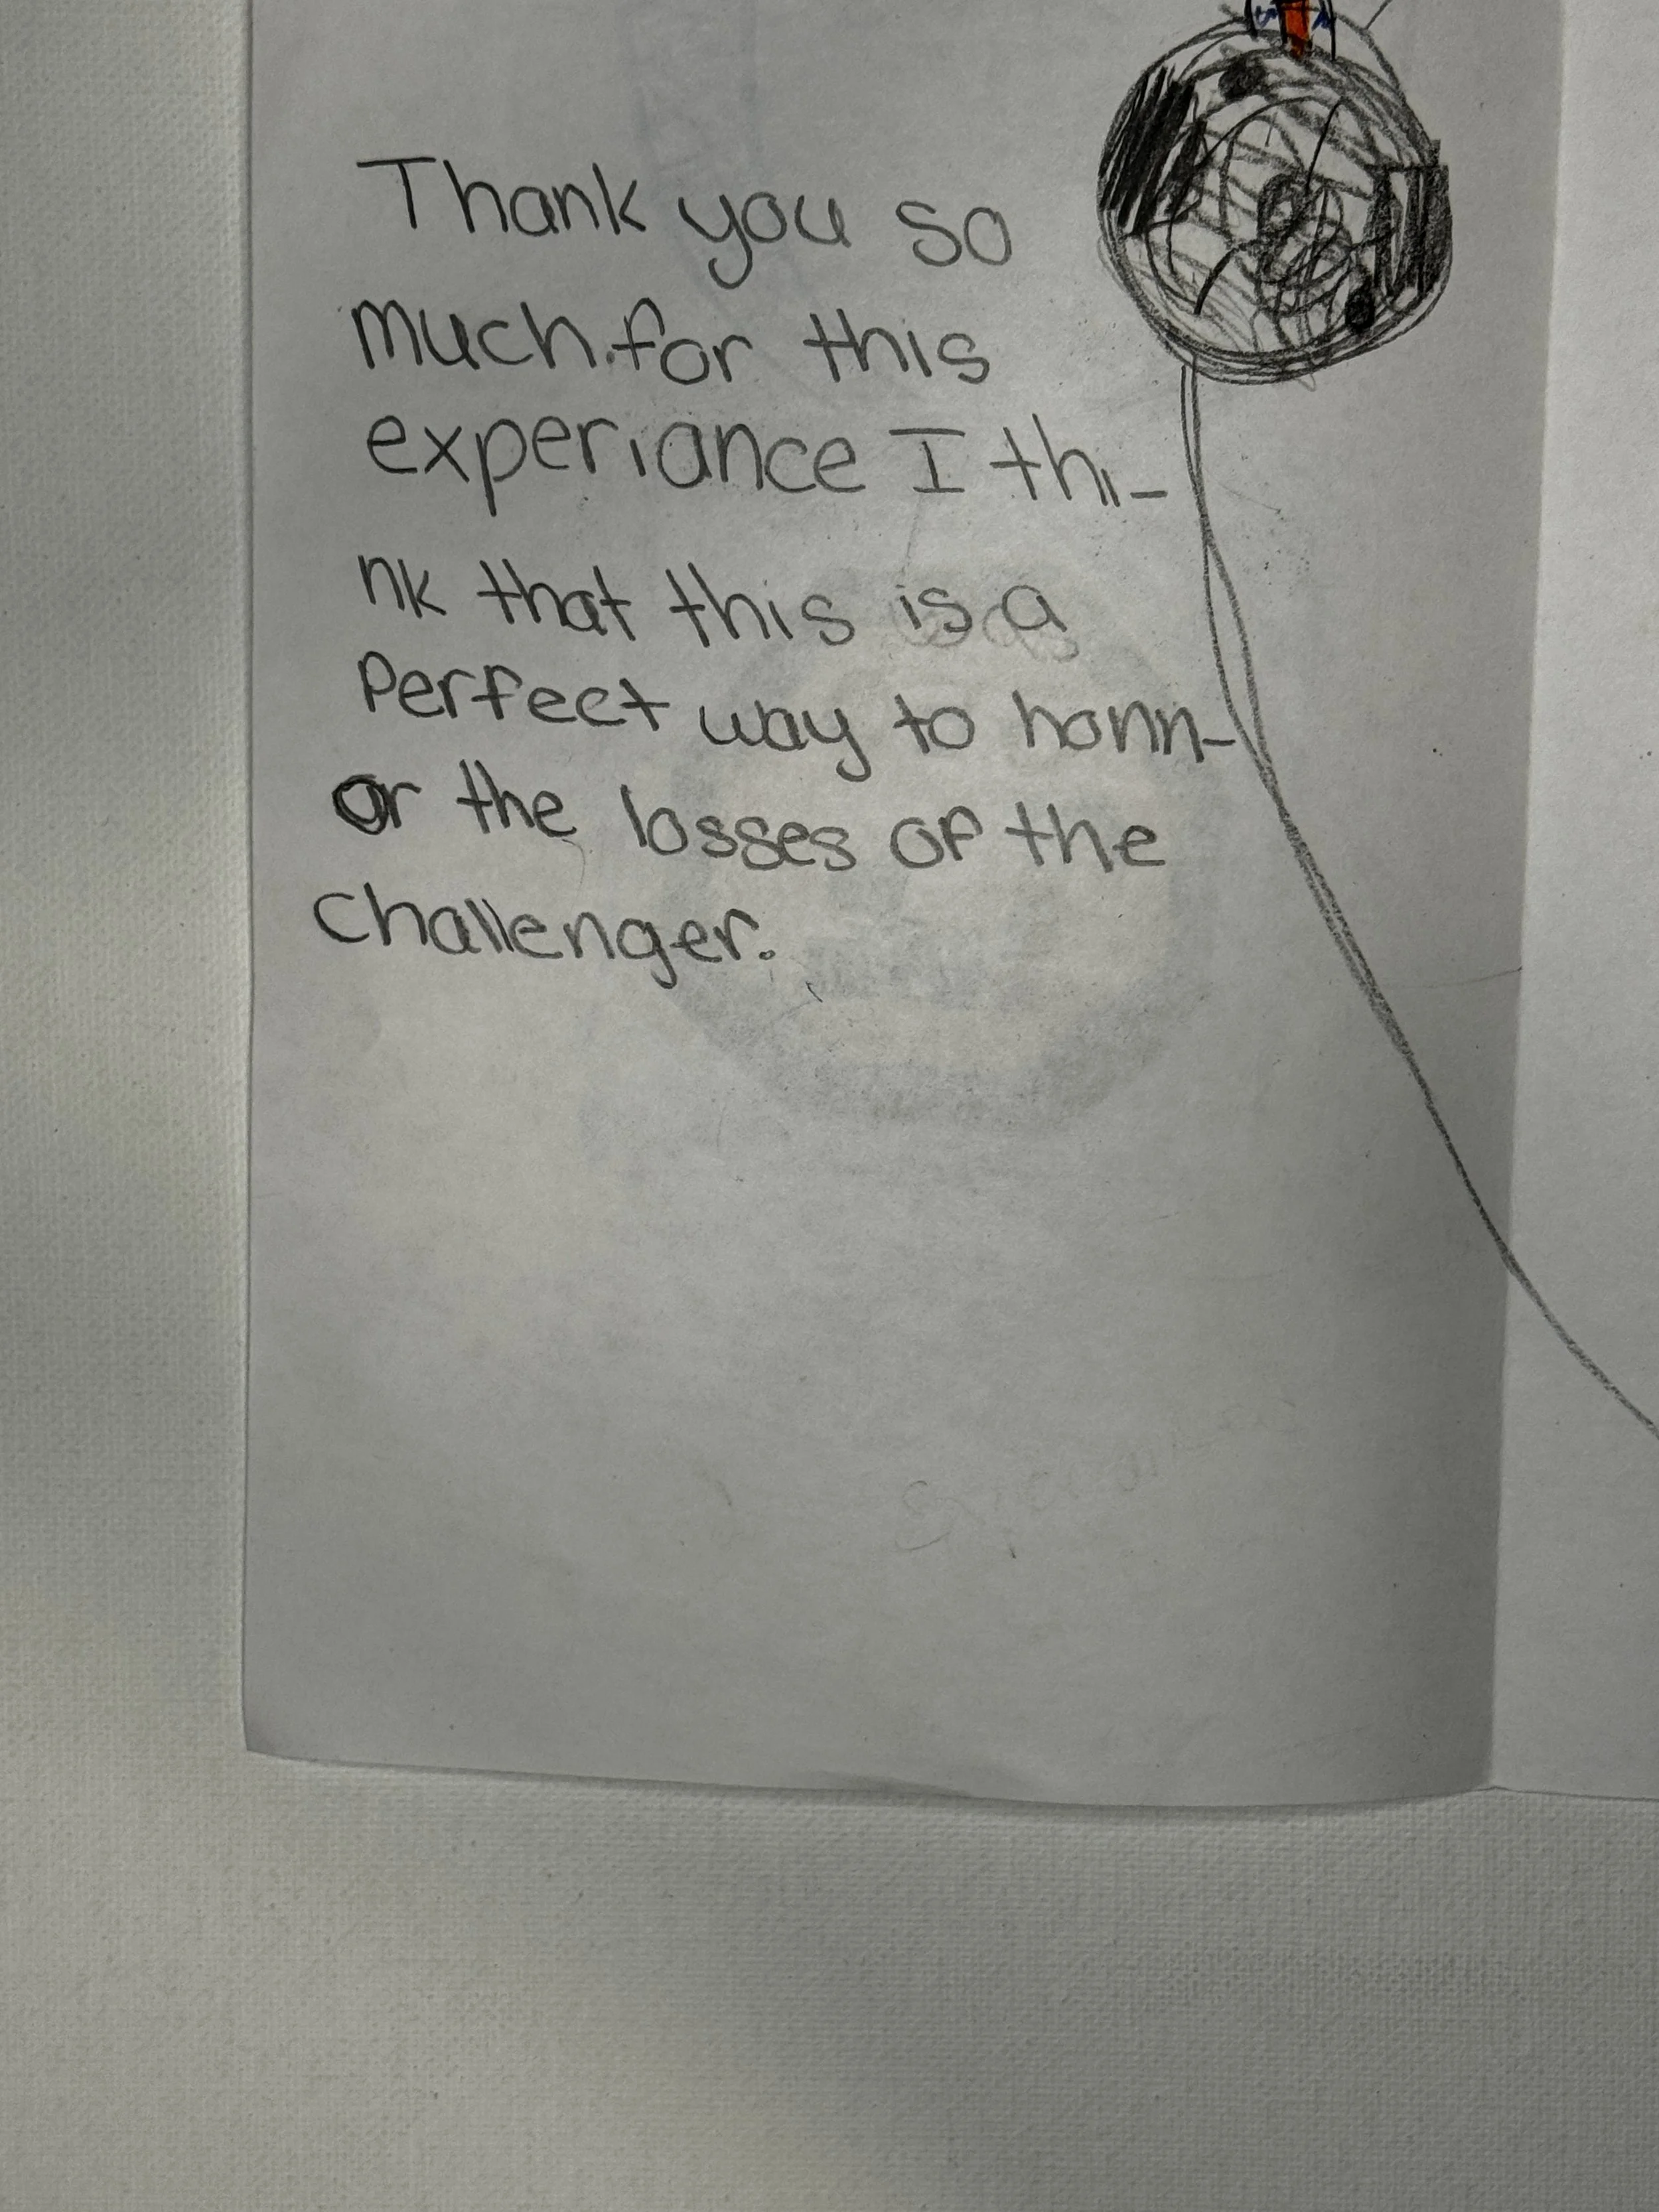 Thank you so
much.for this
experiance I thi-
nk that this is a
Perfect way to honn-
or the losses of the
Challenger.